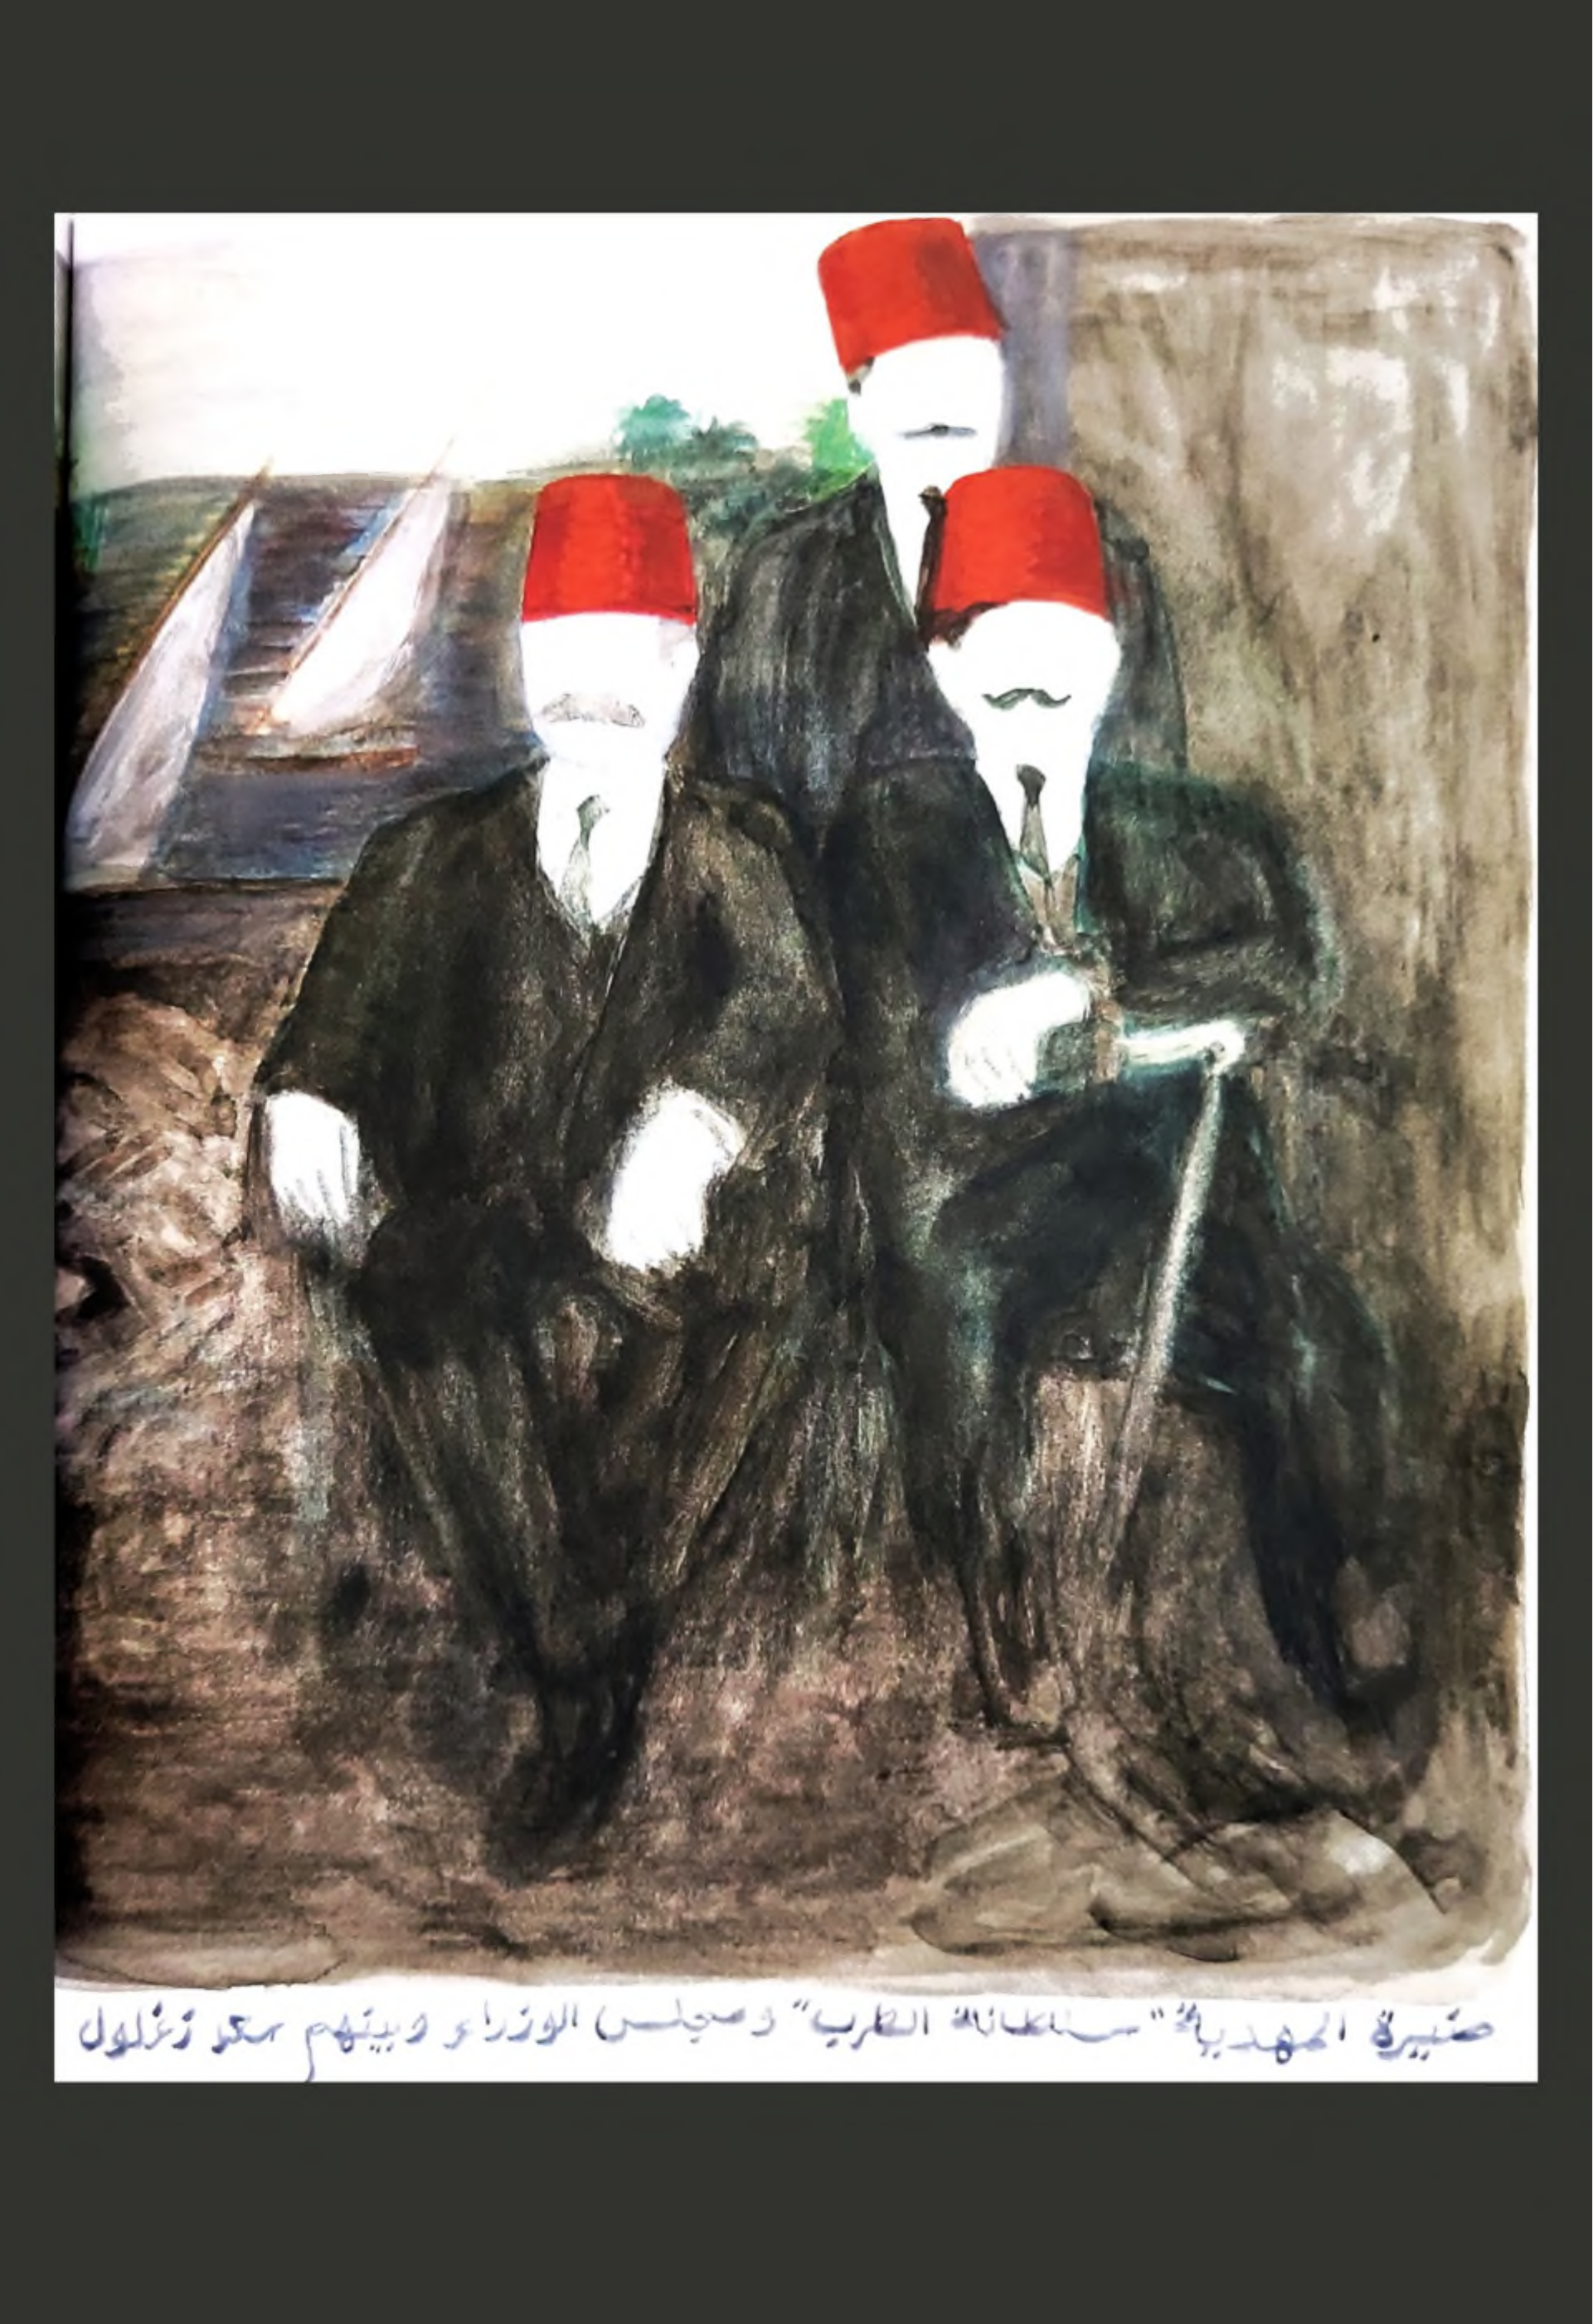 منيرة المهدية "سلطانة الطرب" ومجلس الوزراء وبينهم سعد زغلول